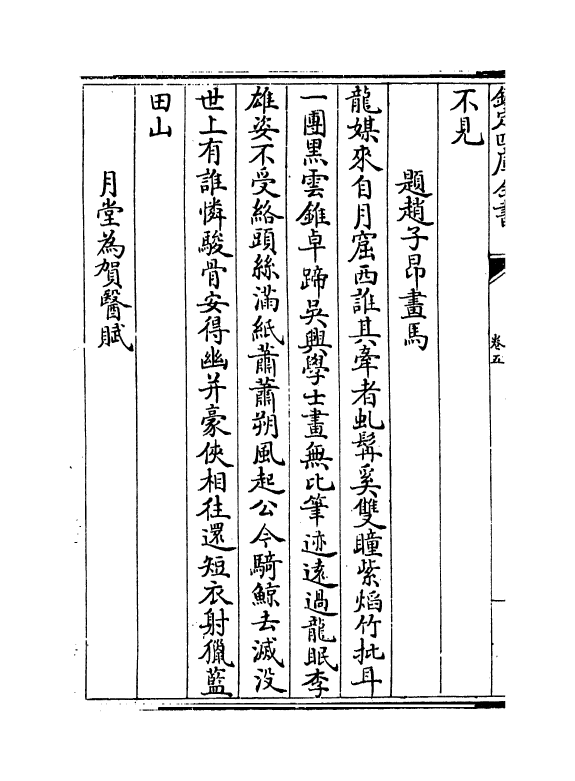 欽定四庫全書
卷五
不見
題趙子昂畫馬
龍媒來自月窟西誰其牽者虬髯奚雙瞳紫焰竹批耳
一團黑雲錐卓蹄吳興學士畫無比筆迹遠過龍眠李
雄姿不受絡頭絲滿紙蕭蕭朔風起公今騎鯨去滅没
世上有誰憐駿骨安得幽并豪俠相往還短衣射獵藍
田山
月堂為賀醫賦